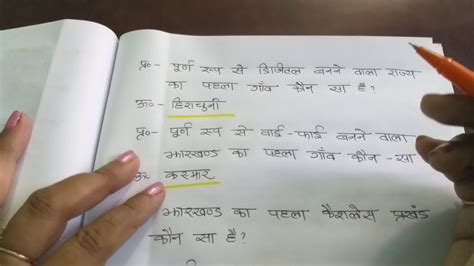 प्र०- पूर्ण रूप से डिजिटल बनने वाला राज्य
का पहला गाँव कौन सा है?
उ०- हिराचुनी
प्र०- पूर्ण रूप से वाई-फाई बनने वाला
झारखण्ड का पहला गाँव कौन-सा
उ०- कस्मार
झारखण्ड का पहला कैशलेस प्रखंड
कौन सा है?